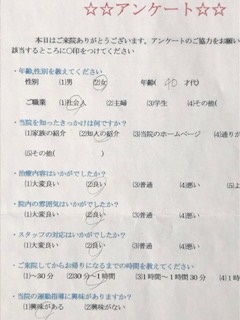 ☆☆アンケート☆☆
本日はご来院ありがとうございます。アンケートのご協力をお願い
該当するところに○印をつけてください
・年齢,性別を教えてください
性別 (1)男 (2)女 年齢( 40 才代)
ご職業 (1)社会人 (2)主婦 (3)学生 (4)その他(
・当院を知ったきっかけは何ですか?
(1)家族の紹介 (2)知人の紹介 (3)当院のホームページ (4)通り
(5)その他( )
・治療内容はいかがでしたか?
(1)大変良い (2)良い (3)普通 (4)悪い (5)
・院内の雰囲気はいかがでしたか?
(1)大変良い (2)良い (3)普通 (4)悪い
・スタッフの対応はいかがでしたか?
(1)大変良い (2)良い (3)普通 (4)悪い
・ご来院してからお帰りになるまでの時間を教えてください
(1)~30分 (2)30分~1時間 (3)1時間~1時間30分 (4)1時
・当院の運動指導に興味がありますか?
(1)興味がある (2)興味がない